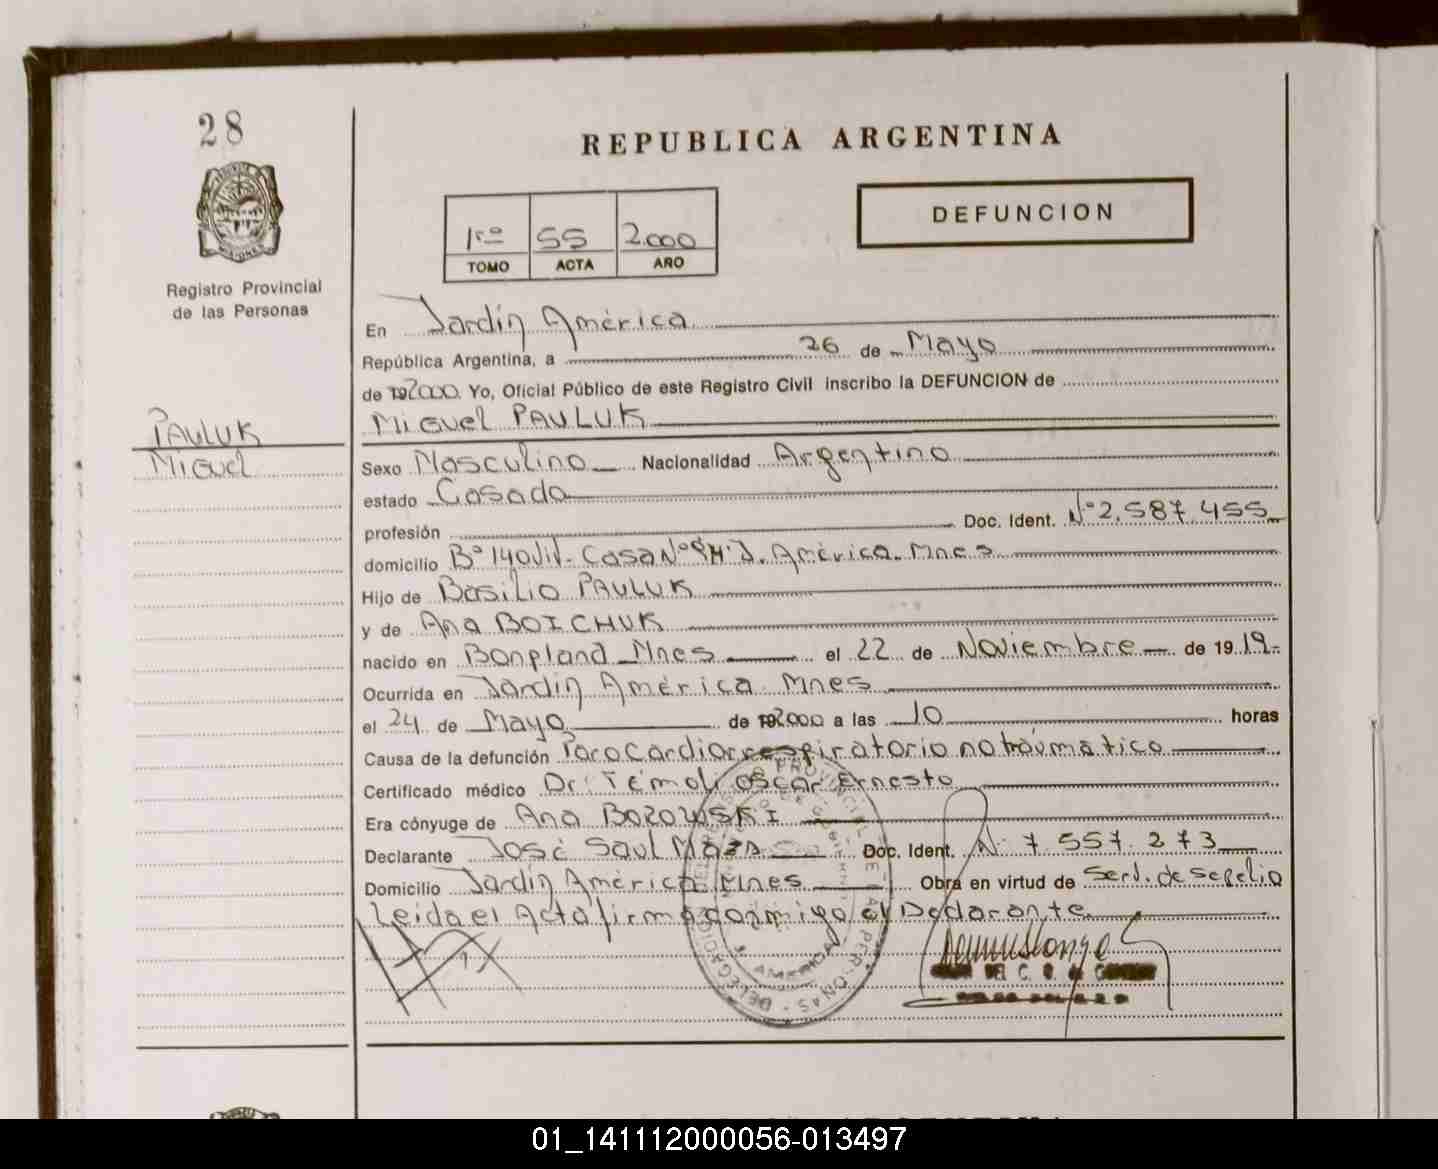 28
REPUBLICA ARGENTINA
1ro 55 2.000
TOMO ACTA ARO
DEFUNCION
Registro Provincial
de las Personas
En Jardín América
República Argentina, a 26 de Mayo
de 192000. Yo, Oficial Público de este Registro Civil inscribo la DEFUNCION de
Miguel PAULUK
PAULUK
Miguel
Sexo Masculino Nacionalidad Argentino
estado Casado
profesión Doc. Ident. Nº 2.587.455
domicilio Bº 140 Viv. Casa Nº J. América. Mnes
Hijo de Basilio PAULUK
y de Ana BOICHUK
nacido en Bonpland Mnes el 22 de Noviembre de 1919.
Ocurrida en Jardín América. Mnes
el 24 de Mayo de 192000 a las 10 horas
Causa de la defunción Paro cardiorrespiratorio no traúmatico
Certificado médico Dr: Témoli Oscar Ernesto
Era cónyuge de Ana BOZOWSKI
Declarante José Saul Doc. Ident. Nº 7 557. 273
Domicilio Jardín América Mnes Obra en virtud de Serv. de Sepelio
Leida el Acta firma conmigo el Declarante
AMERICA
01_141112000056-013497